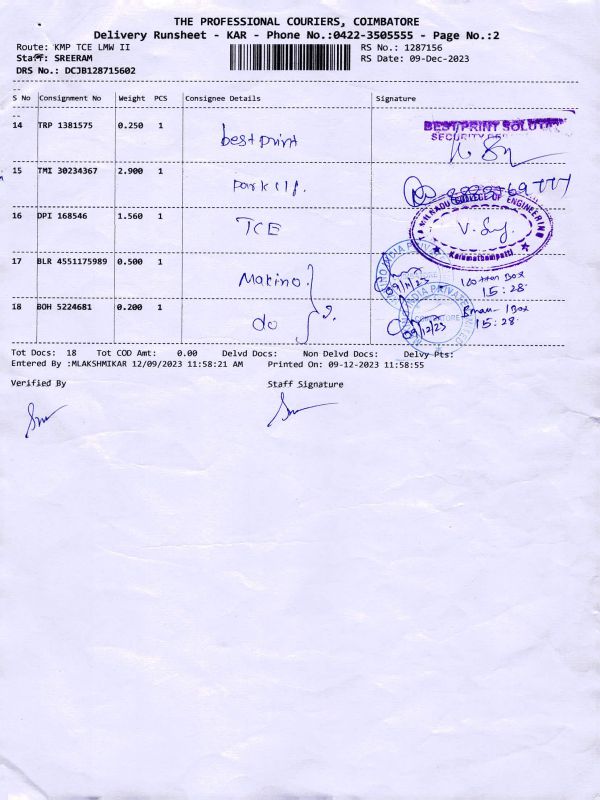 THE PROFESSIONAL COURIERS, COIMBATORE
Delivery Runsheet - KAR - Phone No.:0422-3505555 - Page No.:2
Route: KMP TCE LMW II RS No.: 1287156
Staff: SREERAM RS Date: 09-Dec-2023
DRS No.: DCJB128715602
S No Consignment No Weight PCS Consignee Details Signature
14 TRP 1381575 0.250 1 best print BEST PRINT SOLUT
SECURITY
15 TMI 30234367 2.900 1
16 DPI 168546 1.560 1 TCE COLLEGE OF ENGINEERING
Karumathampatti
17 BLR 4551175989 0.500 1 Makino. Box
09/12/23 15:28
18 BOH 5224681 0.200 1 do 2. 1 Box
09/12/23 15:28
Tot Docs: 18 Tot COD Amt: 0.00 Delvd Docs: Non Delvd Docs: Delvy Pts:
Entered By :MLAKSHMIKAR 12/09/2023 11:58:21 AM Printed On: 09-12-2023 11:58:55
Verified By Staff Signature